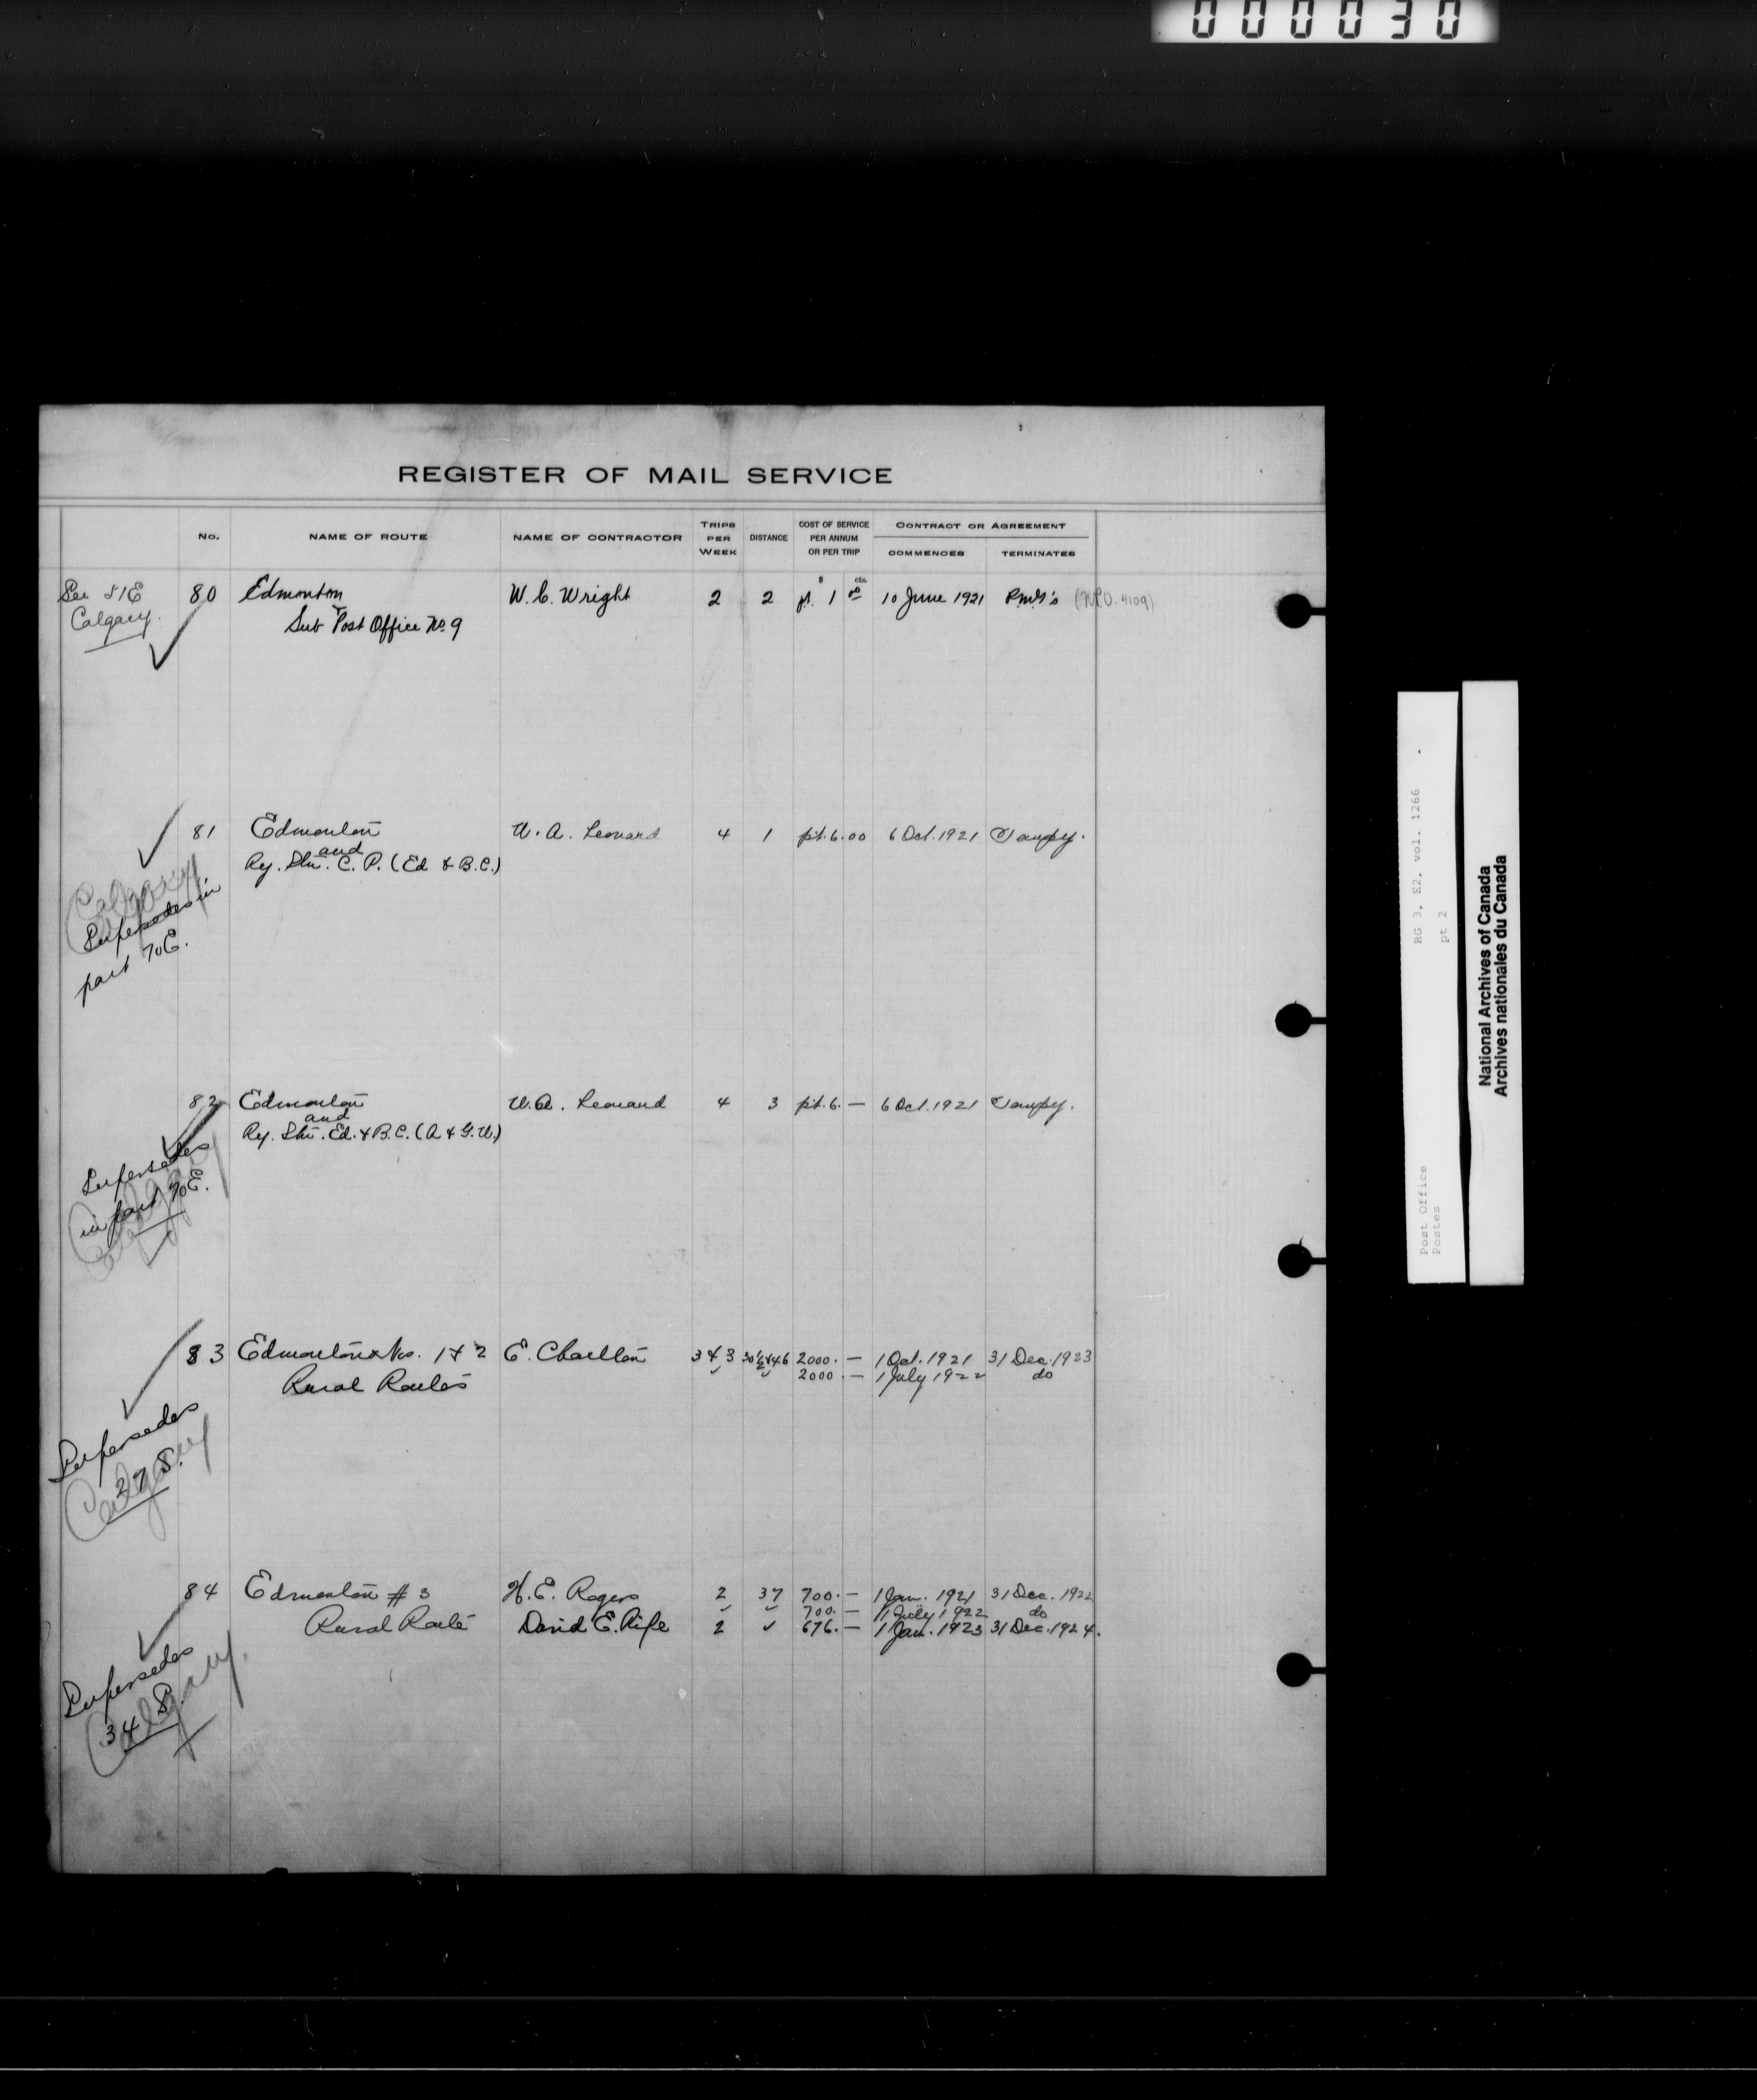 000030
REGISTER OF MAIL SERVICE
No.
NAME OF ROUTE
NAME OF CONTRACTOR
TRIPS PER WEEK
DISTANCE
COST OF SERVICE PER ANNUM OR PER TRIP
CONTRACT OR AGREEMENT
COMMENCES
TERMINATES
$ cts.
See 51E 80 Edmonton W. C. Wright 2 2 pt. 1 00 10 June 1921 P.M.G's (N.P.O. 4109)
Calgary. & Sub Post Office No. 9
81 Edmonton W. A. Leonard 4 1 pt. 6.00 6 Oct. 1921 Tempy.
and
Ry. Stn. C. P. (Ed & B.C.)
Calgary
Supersedes in
part 70E.
82 Edmonton W. A. Leonard 4 3 pt. 6. — 6 Oct. 1921 Tempy.
and
Ry. Stn. Ed. & B.C. (A & G.W.)
Supersedes
in part 70E.
Calgary
83 Edmonton Nos. 1 & 2 E. Charlton 3 & 3 30 1/2 & 46 2000. — 1 Oct. 1921 31 Dec. 1923
Rural Routes 2000. — 1 July 1922 do
Supersedes
27 S.
Calgary
84 Edmonton # 3 H. E. Rogers 2 37 700. — 1 Jan. 1921 31 Dec. 1922
700. — 1 July 1922 do
Rural Route David E. Rife 2 676. — 1 Jan. 1923 31 Dec. 1924.
Supersedes
34 S.
Calgary.
RG 3, E2, vol. 1266
pt 2
Post Office
Postes
National Archives of Canada
Archives nationales du Canada